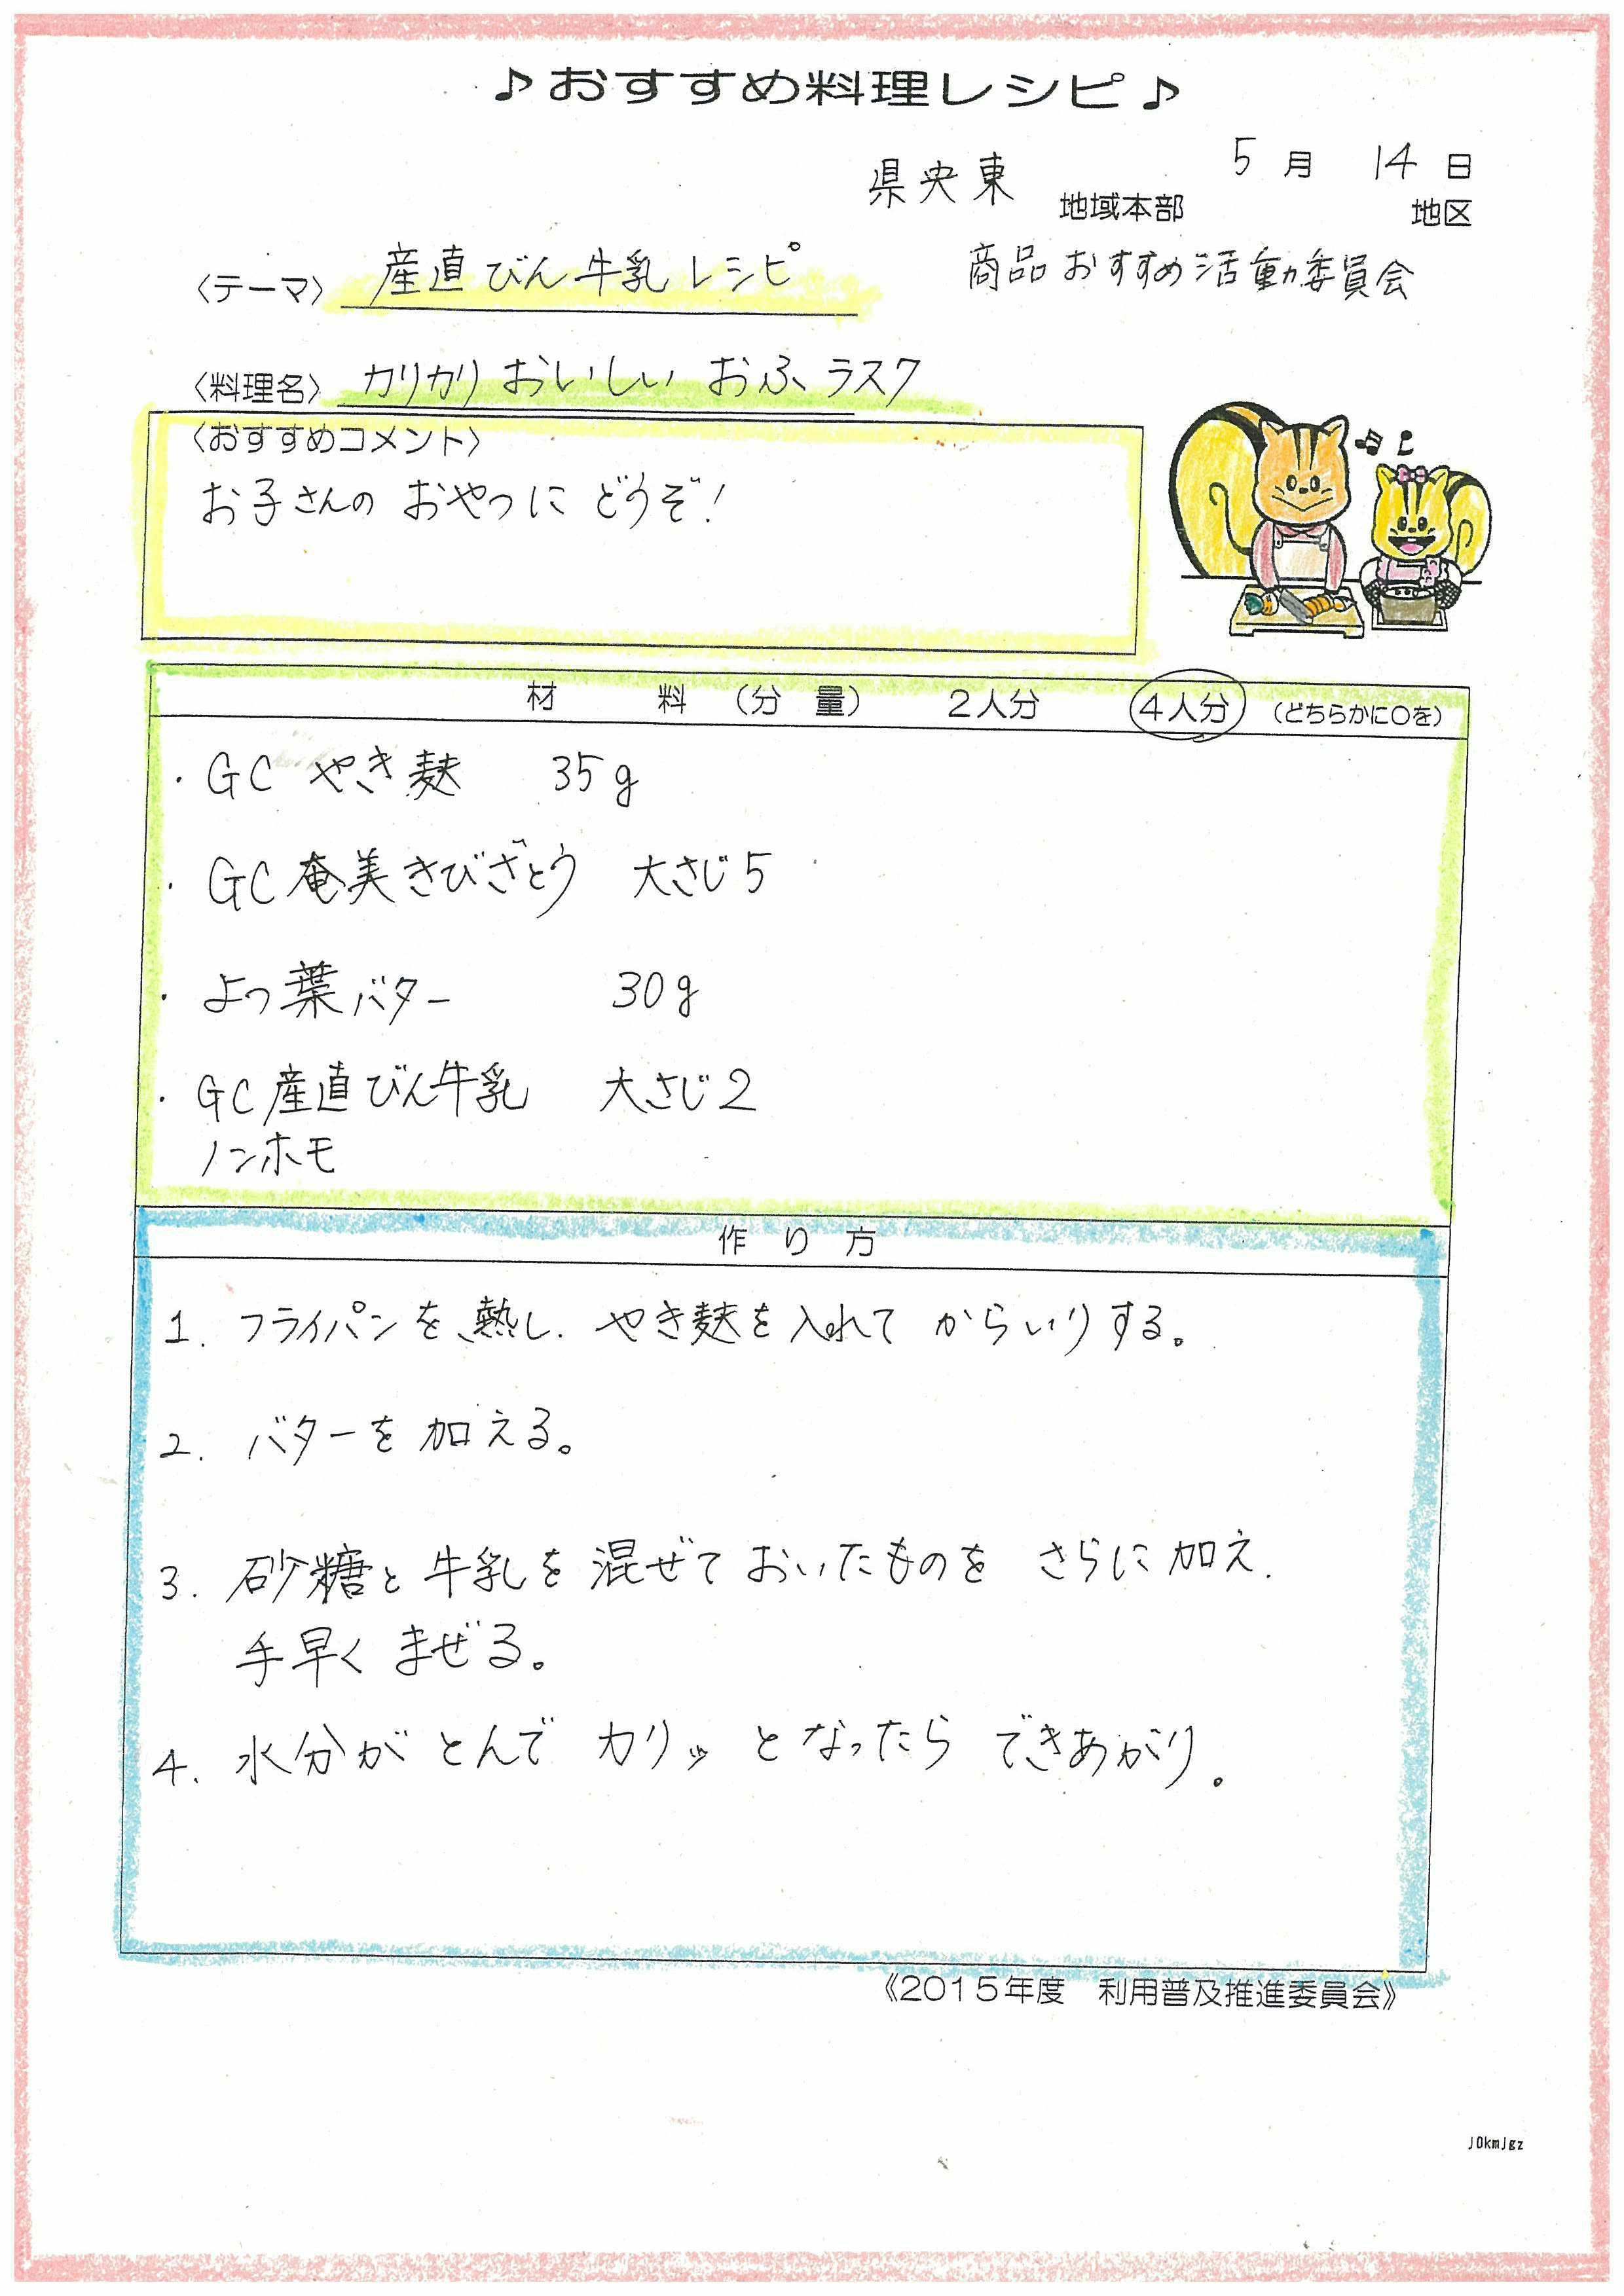 ♪おすすめ料理レシピ♪
5月 14日
県央東 地域本部 地区
〈テーマ〉 産直びん牛乳レシピ 商品おすすめ活動委員会
〈料理名〉 カリカリおいしいおふラスク
〈おすすめコメント〉
お子さんの おやつに どうぞ!
材 料 (分 量) 2人分 4人分 (どちらかに〇を)
・GC やき麸 35g
・GC奄美きびざとう 大さじ5
・よつ葉バター 30g
・GC産直びん牛乳 大さじ2
ノンホモ
作 り 方
1. フライパンを熱し、やき麸を入れて からいりする。
2. バターを加える。
3. 砂糖と牛乳を混ぜておいたものを さらに加え、
手早く まぜる。
4. 水分がとんで カリッとなったら できあがり。
《2015年度 利用普及推進委員会》
j0kmjgz